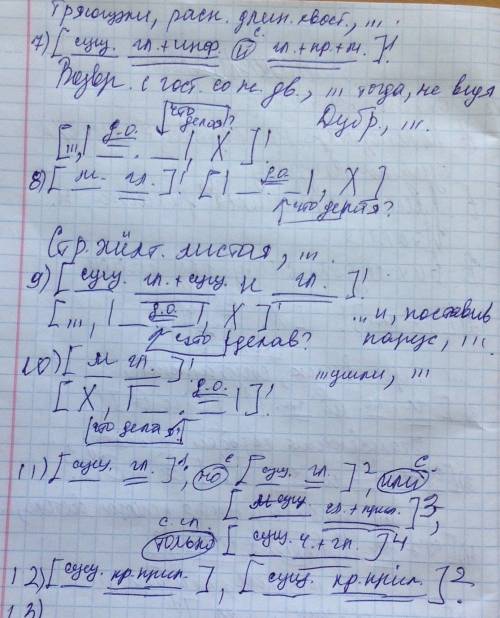 трящими, расн. длин. хвост, ... .
с.
7) [сущ. гл.+инф. и гл.+пр+м.]1
Возвр. с гост. со не. дв., ... тогда, не видя
Дубр., ... .
что делая?
д.о.
[..., |. |, X ]1
8) [м. гл.]1 [| д.о. |, X]
что делая?
Стр. жёлт. листая, ... .
9) [сущ. гл.+сущ. и гл.]1
[..., | д.о. |, X ]1 ...и, поставив
что делав? парус, ... .
10) [м гл.]1 ...ушли, ...
[X, | д.о. |]1
что делая?
11) [сущ. гл.]1, но с [сущ. гл.]2, или с.
[м сущ. гл.+прил.]3,
с. сл.
только [сущ. ч.+гл.]4
12) [сущ. кр.прил.], [сущ. кр.прил.]2
13)